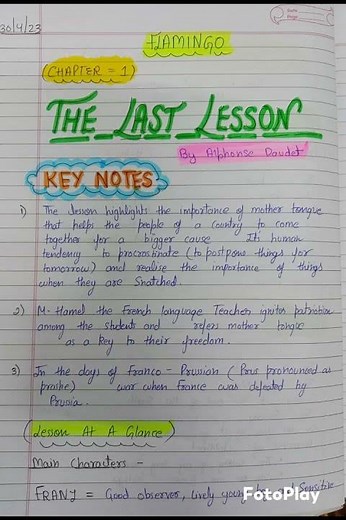 30/4/23
Date
Page
FLAMINGO
(CHAPTER = 1)
THE LAST LESSON
By Alphonse Daudet
KEY NOTES
1) The lesson highlights the importance of mother tongue
that helps the people of a country to come
together for a bigger cause Its human
tendency to procrastinate (to postpone things for
tomorrow) and realise the importance of things
when they are Snatched.
2) M. Hamel the French language Teacher ignites patriotism
among the student and refers mother tongue
as a key to their freedom.
3) In the days of Franco - Prussian ( Prus pronounced as
war when France was defeated by
(Lesson At A Glance)
Main Characters -
FRANZ = Good observer, lively young Sensitive
FotoPlay